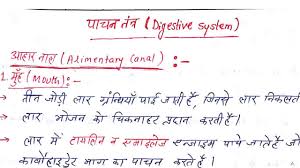 पाचन तंत्र (Digestive system)
आहार नाल (Alimentary Canal) :-
1. मुँह (Mouth) :-
→ तीन जोड़ी लार ग्रंथियाँ पाई जाती हैं, जिनसे लार निकलती
→ लार भोजन को चिकनाहट प्रदान करती है।
→ लार में टायलिन व एमाइलेज एन्जाइम पाये जाते हैं जो
कार्बोहाइड्रेट भाग का पाचन करते हैं।